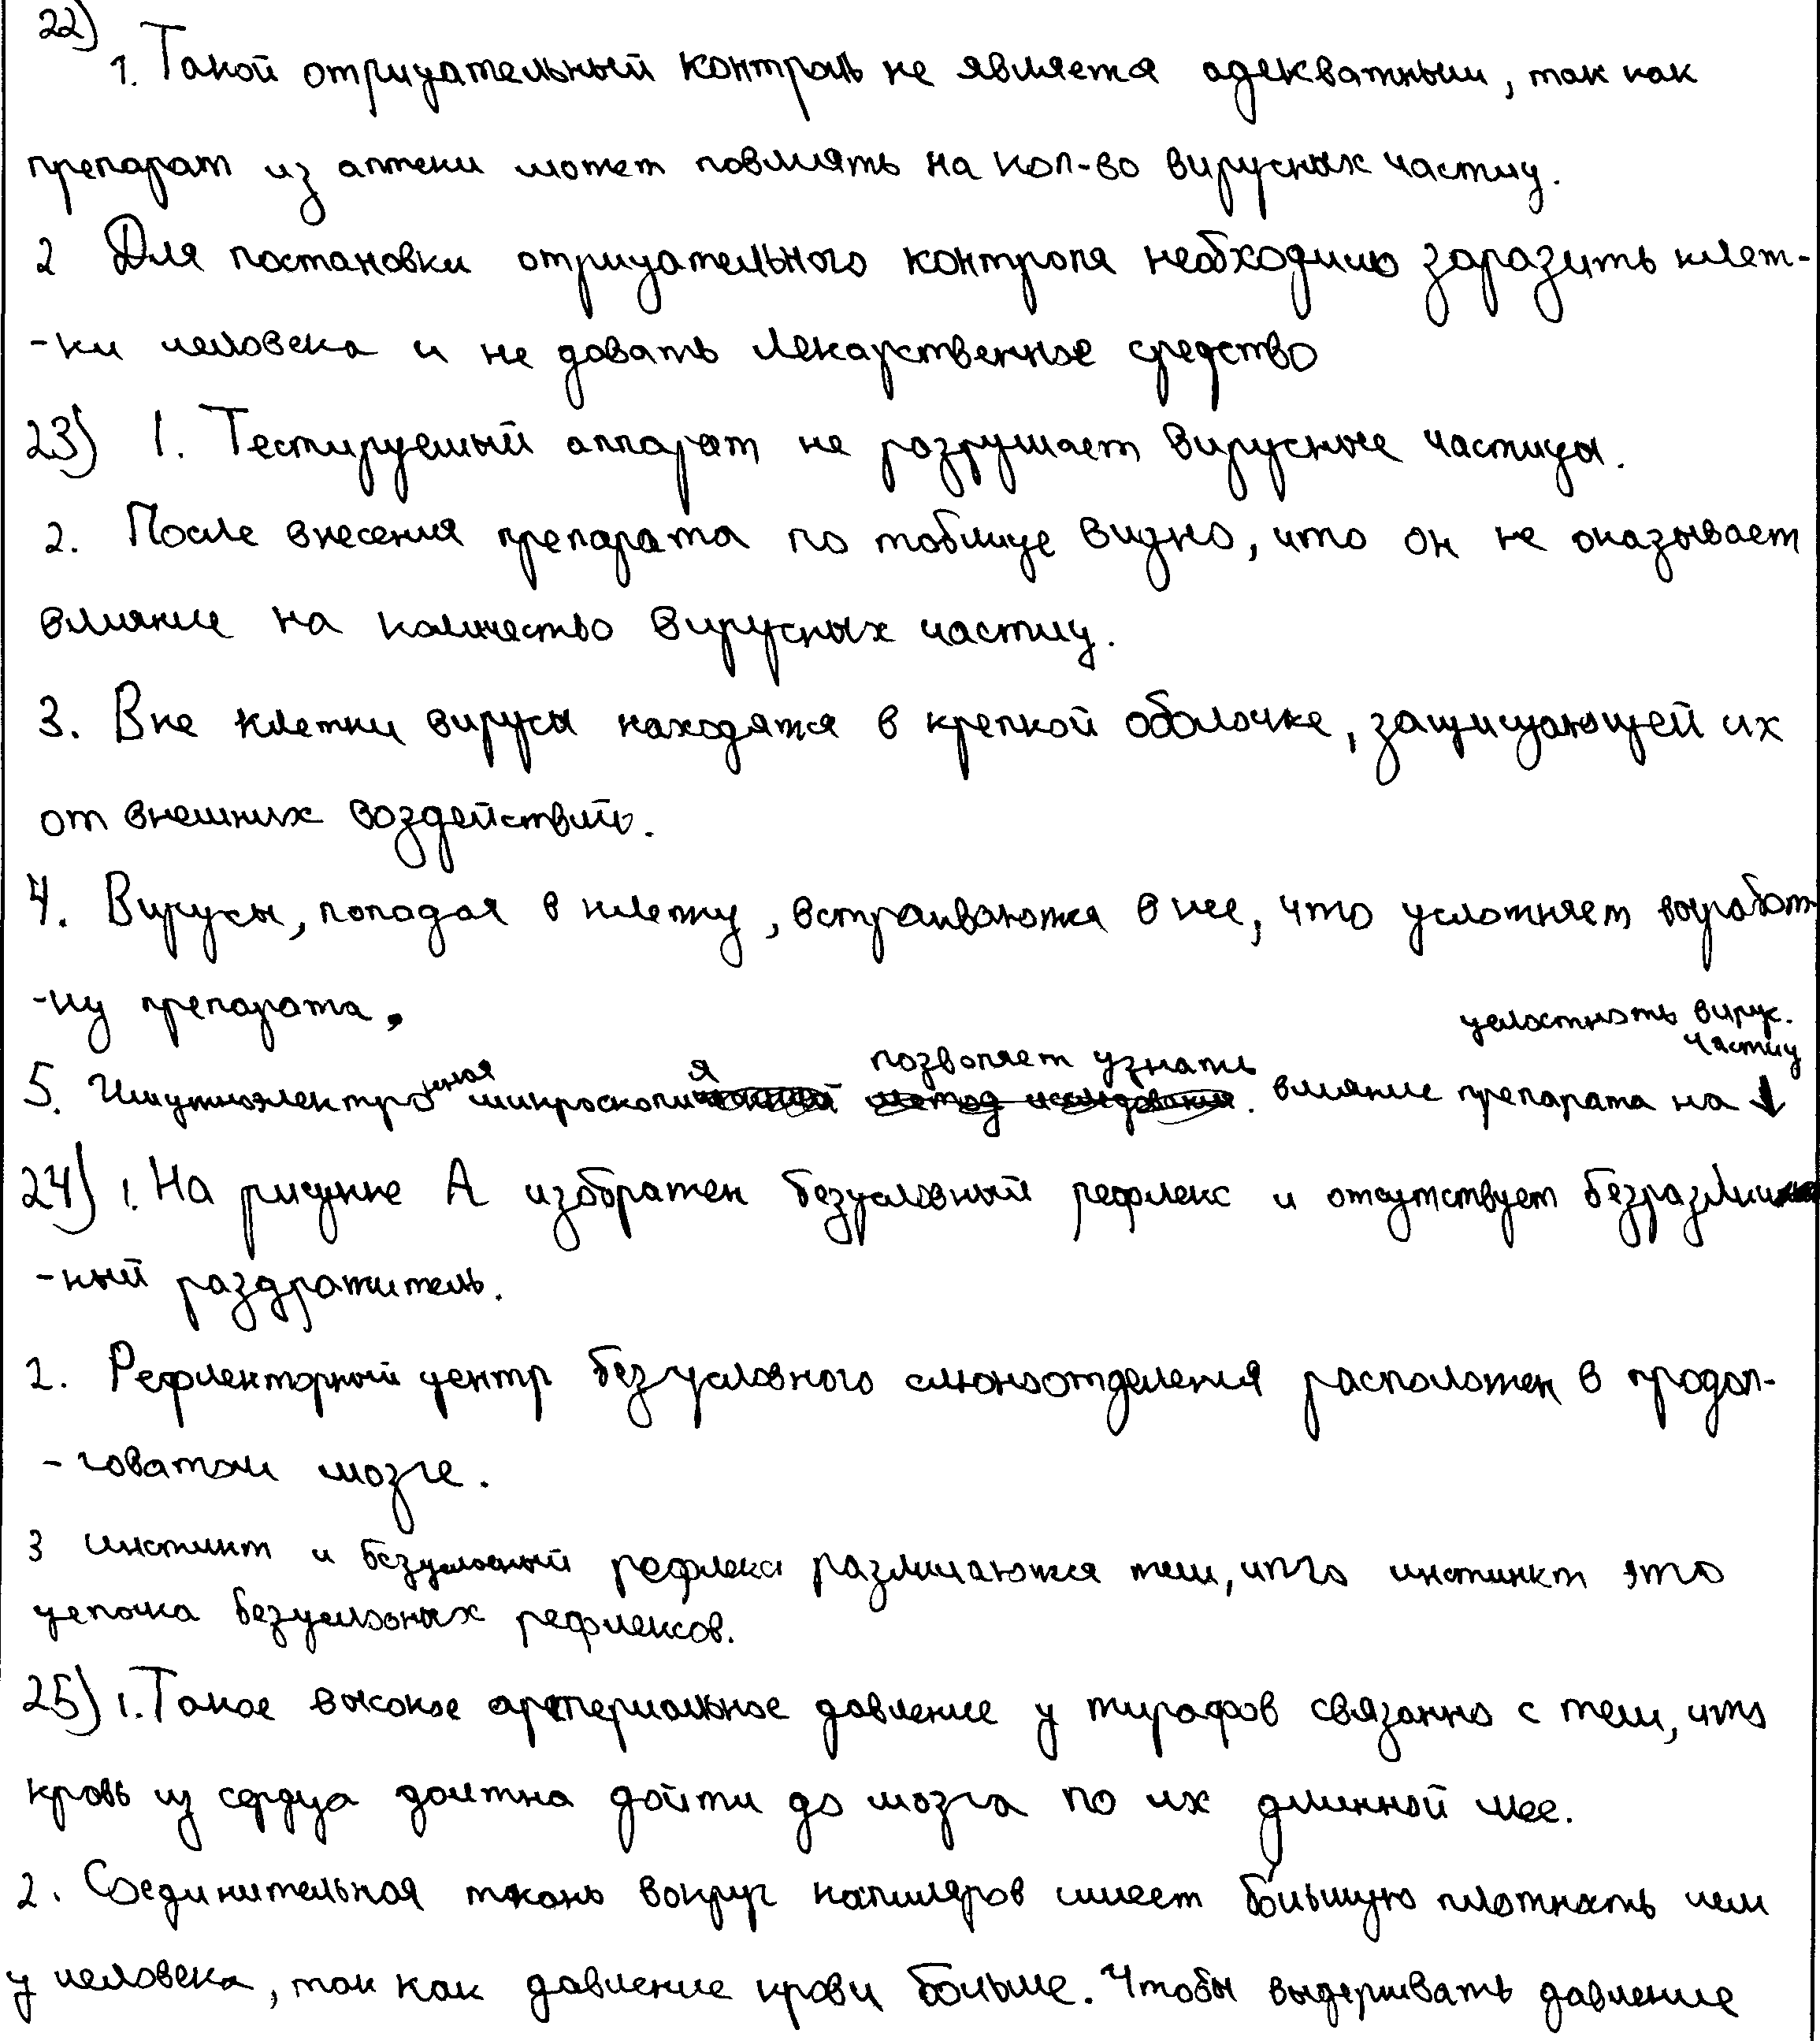 22)
1. Такой отрицательный контроль не является адекватным, так как
препарат из аптеки может повлиять на кол-во вирусных частиц.
2 Для постановки отрицательного контроля необходимо заразить клет-
-ки человека и не давать лекарственное средство
23) 1. Тестируемый аппарат не разрушает вирусные частицы.
2. После внесения препарата по таблице видно, что он не оказывает
влияние на количество вирусных частиц.
3. Вне клетки вирусы находятся в крепкой оболочке, защищающей их
от внешних воздействий.
4. Вирусы, попадая в клетку, встраиваются в нее, что усложняет выработ-
-ку препарата.
5. Имунноэлектронная микроскопия позволяет узнать влияние препарата на ↓
целостность вирус. частиц
24) 1. На рисунке А изображен безусловный рефлекс и отсутствует безразлич
-ный раздражитель.
2. Рефлекторный центр безусловного слюноотделения расположен в продол-
-говатом мозге.
3 инстинкт и безусловный рефлекс различаются тем, что инстинкт это
цепочка безусловных рефлексов.
25) 1. Такое высокое артериальное давление у жирафов связанно с тем, что
кровь из сердца должна дойти до мозга по их длинной шее.
2. Соединительная ткань вокруг капиляров имеет бо́льшую плотность чем
у человека, так как давление крови больше. Чтобы выдерживать давление